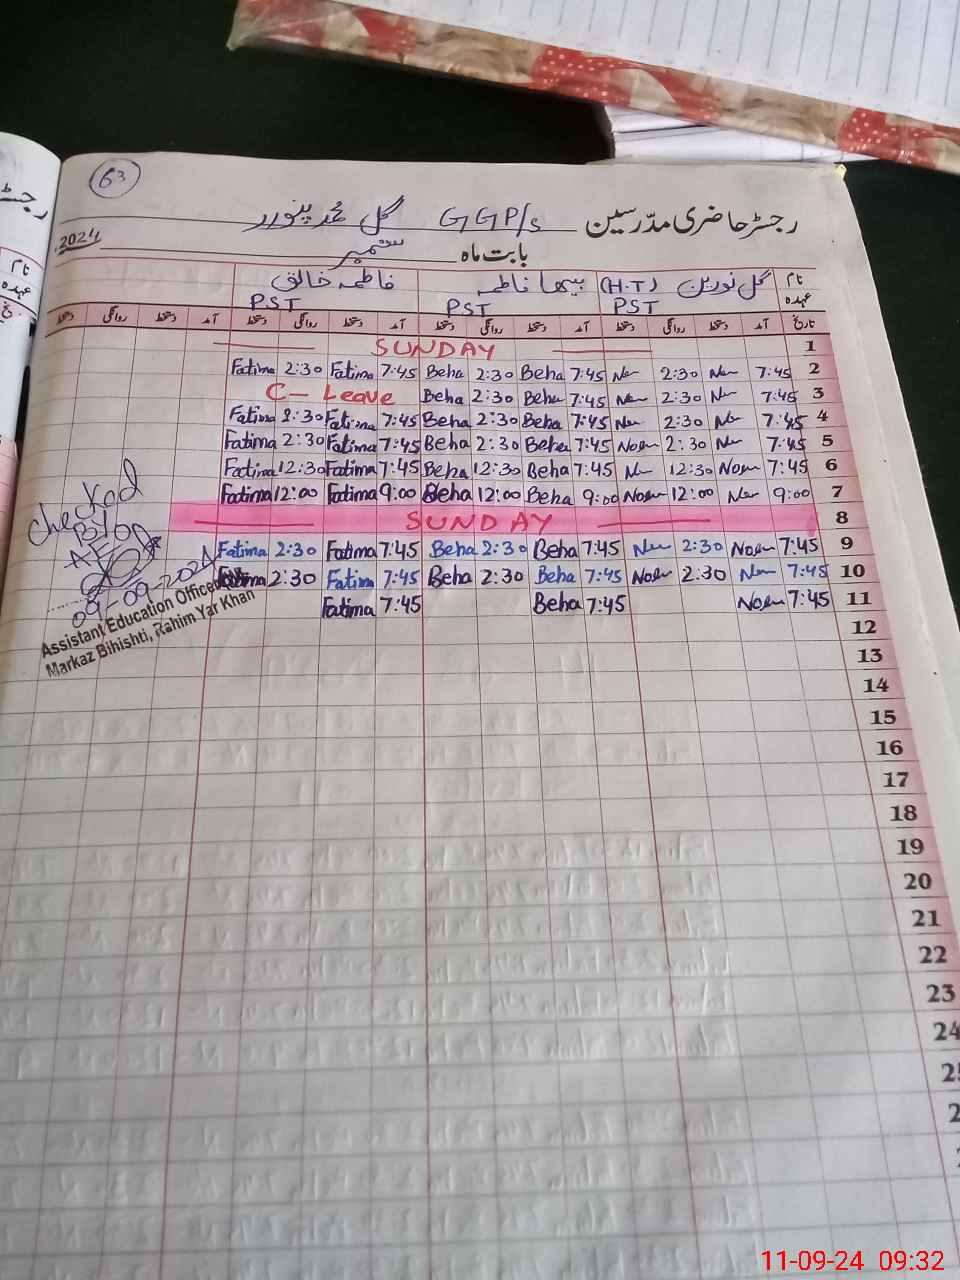 63
رجسٹر حاضری مدرسین GGP/s گل محمد پنوور
بابت ماہ ستمبر 2024
نام گل نورین (H.T) بیہا فاطمہ فاطمہ خالق
عہدہ PST PST PST
تاریخ آمد دستخط روانگی دستخط آمد دستخط روانگی دستخط آمد دستخط روانگی دستخط آمد دستخط روانگی دستخط
SUNDAY 1
Fatima 2:30 Fatima 7:45 Beha 2:30 Beha 7:45 2:30 7:45 2
C- Leave Beha 2:30 Beha 7:45 2:30 7:45 3
Fatima 2:30 Fatima 7:45 Beha 2:30 Beha 7:45 2:30 7:45 4
Fatima 2:30 Fatima 7:45 Beha 2:30 Beha 7:45 Noen 2:30 7:45 5
Fatima 12:30 Fatima 7:45 Beha 12:30 Beha 7:45 12:30 Noen 7:45 6
Fatima 12:00 Fatima 9:00 Beha 12:00 Beha 9:00 Noen 12:00 9:00 7
SUNDAY 8
Fatima 2:30 Fatima 7:45 Beha 2:30 Beha 7:45 2:30 Noen 7:45 9
Fatima 2:30 Fatima 7:45 Beha 2:30 Beha 7:45 Noen 2:30 7:45 10
Fatima 7:45 Beha 7:45 Noen 7:45 11
checked
By
AEO
09-09-2024
Assistant Education Officer
Markaz Bihishti, Rahim Yar Khan
12
13
14
15
16
17
18
19
20
21
22
23
24
11-09-24 09:32